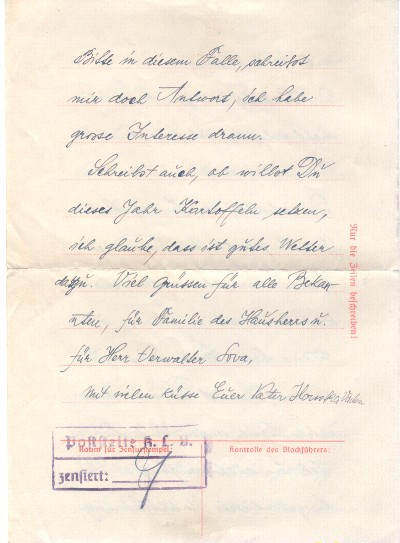 Bitte in diesem Falle, schreibst
mir doch Antwort, ich habe
grosse Interesse drann.
Schreibst auch, ob willst Du
dieses Jahr Kartoffeln setzen,
ich glaube, dass ist gutes Wetter
dazu. Viel Grüssen für alle Bekan-
nten, für Familie des Hausherrs u.
für Herr Verwalter Sova,
Mit vielen Küsse Euer Vater
Nur die Zeilen beschreiben!
Poststelle K. L. B.
Raum für Zensurstempel:
Kontrolle des Blockführers:
zensiert: